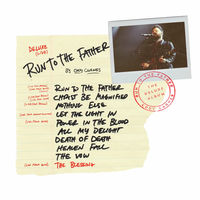 DELUXE
(LIVE)
RUN TO THE FATHER
BY CODY CARNES
RUN TO THE FATHER
CHRIST BE MAGNIFIED
NOTHING ELSE
LET THE LIGHT IN
POWER IN THE BLOOD
ALL MY DELIGHT
DEATH OF DEATH
HEAVEN FALL
THE VOW
THE BLESSING
RUN TO THE FATHER
THE
DELUXE
ALBUM